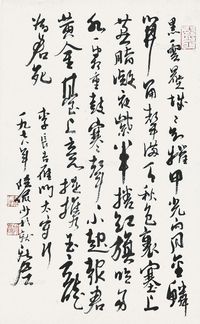 黑雲壓城城欲摧甲光向金鱗
開角聲滿天秋色裏塞上
燕脂凝夜紫半捲紅旗臨易
水霜重鼓寒聲不起報君
黄金臺上意提攜玉龍
為君死
李長吉雁門太守行
一九七八年